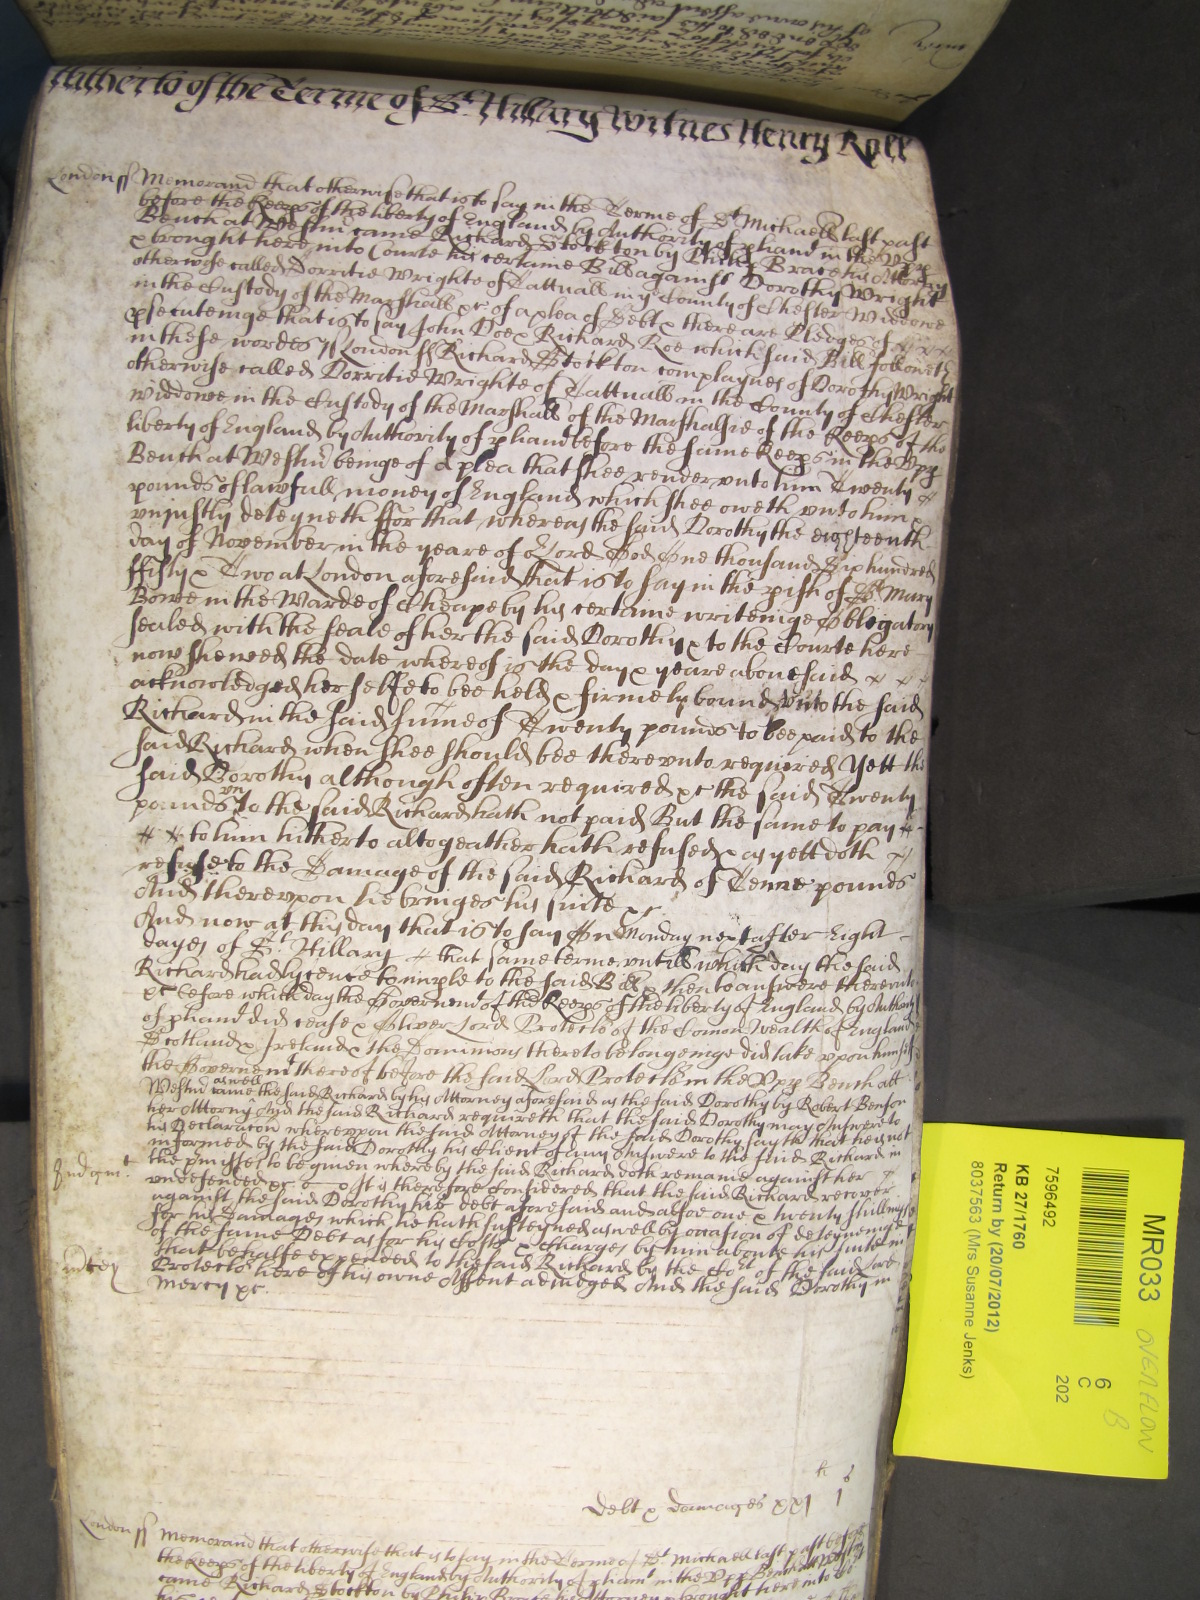 Hitherto of the Terme of St. Hillary Witnes Henry Roll
London ss Memorand that otherwise that is to say in the Terme of St Michaell last past
before the Keeps of the liberty of England by Authority of pliamt in the Vpp
Bench at Westm came Richard Stockton by Philip Brace his Attorny
& brought here into Courte his certaine Bill against Dorothy Wright
otherwise called Dorritie Wrighte of Tattnall in ye County of Chester Widdowe
in the Custody of the Marshall &c of a plea of Debt & there are Pledges of
psecuteinge that is to say John Doe & Richard Roe which said Bill followeth
in these wordes ss London ss Richard Stockton complaynes of Dorothy Wright
otherwise called Dorritie Wrighte of Tattnall in the County of Chester
Widdowe in the Custody of the Marshall of the Marshalsie of the Keeps of the
liberty of England by Authority of pliamt before the same Keeps in the Vpp
Bench at Westm beinge of a plea that shee render vnto him Twenty
pounds of lawfull money of England which shee oweth vnto him &
vniustly deteyneth ffor that whereas the said Dorothy the eighteenth
day of November in the yeare of or Lord God One thousand Six hundred
ffifty & Two at London aforesaid that is to say in the pish of St Mary
Bowe in the Warde of Cheape by his certaine writeinge Obligatory
sealed with the seale of her the said Dorothy & to the Courte here
now shewed the date whereof is the day & yeare abovesaid
acknowledged her selfe to bee held & firmely bound vnto the said
Richard in the said summe of Twenty pounds to bee paid to the
said Richard when shee should bee therevnto required Yett the
said Dorothy although often required &c the said Twenty
pounds vnto the said Richard hath not paid But the same to pay
to him hitherto altogeather hath refused & as yett doth
refuse to the Damage of the said Richard of Tenne pounds
And therevpon he bringes his suite &c
And now at this day that is to say On Monday next after Eight
dayes of St. Hillary that same terme vntill which day the said
Richard had lycence to imple to the said Bill & then to answere therevnto
&c before which day the Governemt of the Keeps of the liberty of England by Authority
of pliamt did cease & Oliver Lord Protector of the Comon Wealth of England
Scotland & Ireland & the Dominions thereto belongeinge did take vpon himself
the Governemt thereof before the said Lord Protector in the Vpp Bench att
Westm came aswell the said Richard by his Attorney aforesaid as the said Dorothy by Robert Benson
her Attorny And the said Richard requireth that the said Dorothy may answere to
his Declaracon wherevpon the said Attorney of the said Dorothy sayth that he is not
informed by the said Dorothy his Client of any Answere to the said Richard in
the pmisses to be given whereby the said Richard doth remaine against her
Judgmt.
vndefended &c Itt is therefore Considered that the said Richard recover
against the said Dorothy his debt aforesaid and alsoe one & twenty shillings
for his Damages which he hath susteyned aswell by occasion of deteyneinge
of the same Debt as for his Costs & Charges by him aboute his suite in
that behalfe expended to the said Richard by the Cort of the said Lord
Protector here of his owne Assent adiudged And the said Dorothy in
mercy &c.
Debt & damages xxj l j s
London ss Memorand that otherwise that is to say in the Terme of St. Michaell last past before
the Keeps of the liberty of England by Authority of pliamt in the Vpp Bench at Westm
came Richard Stockton by Philip Brace his Attorney & brought here into
MR033
OVERFLOW
B
6
C
202
7596492
KB 27/1760
Return by (20/07/2012)
8037563 (Mrs Susanne Jenks)